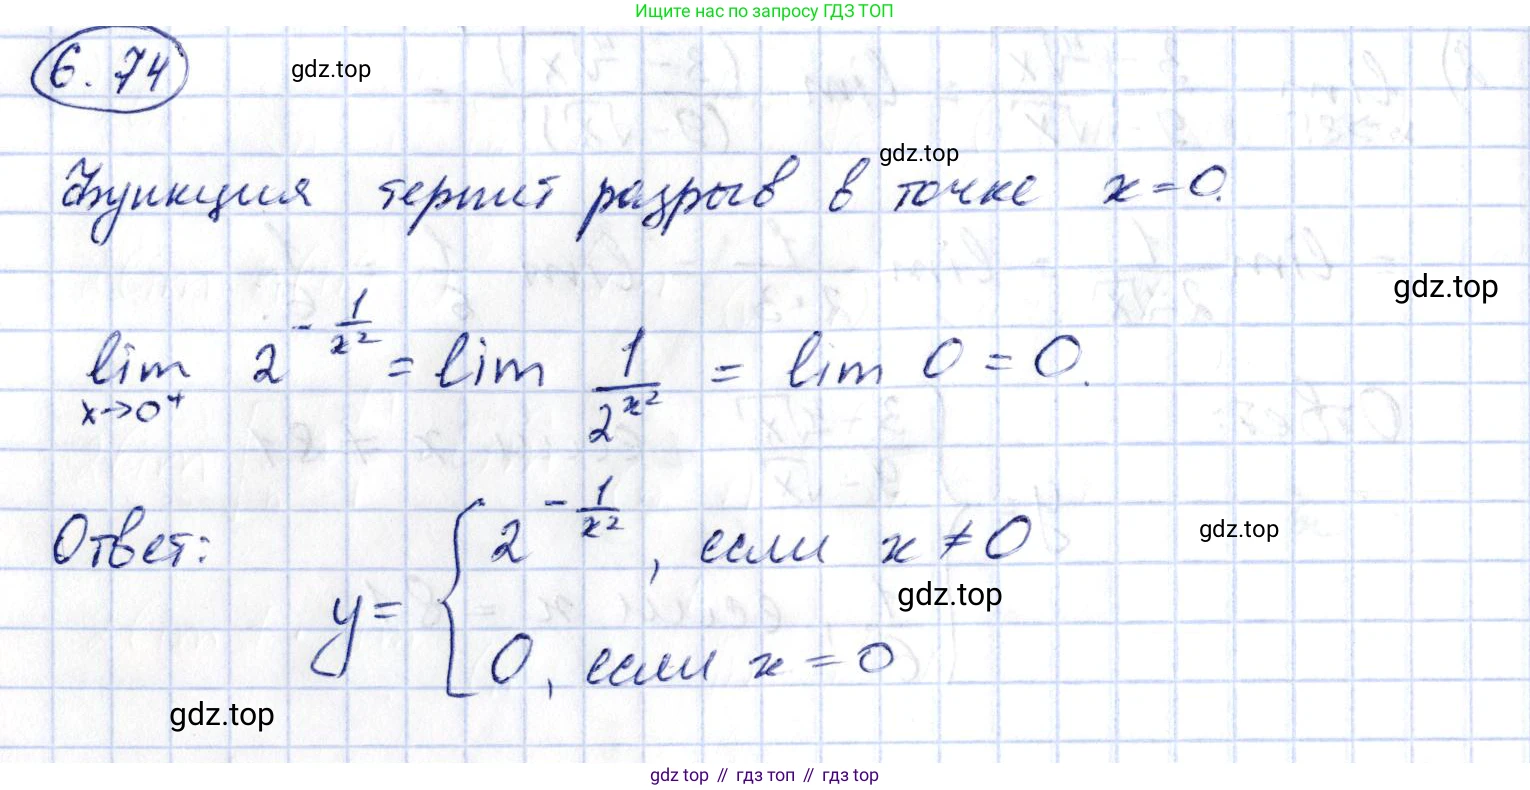 Ищите нас по запросу ГДЗ ТОП
6.74
gdz.top
gdz.top
Функция терпит разрыв в точке x=0.
gdz.top
lim x→0⁺ 2^(-1/x²) = lim 1/2^(x²) = lim 0 = 0.
Ответ: y = { 2^(-1/x²), если x ≠ 0
gdz.top
gdz.top
0, если x = 0
gdz.top
gdz top // гдз топ // гдз top